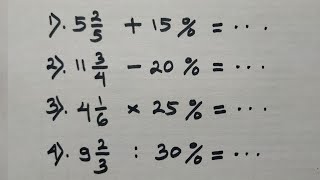 1). 5 2/5 + 15% = ...
2). 11 3/4 - 20% = ...
3). 4 1/6 × 25% = ...
4). 9 2/3 : 30% = ...